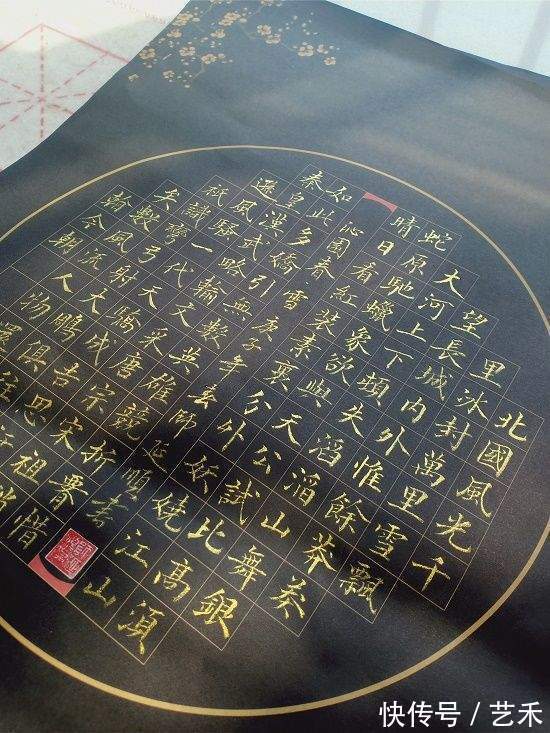 北國風光千
里冰封萬里雪飄
望長城內外惟餘莽莽
大河上下頓失滔滔山舞銀
蛇原馳蠟象欲與天公試比高須
晴日看紅裝素裹分外妖嬈江山
沁園春雪庚子年玄師延順書
如此多嬌引無數英雄競折腰惜
秦皇漢武略輸文采唐宗宋祖稍
遜風騷一代天驕成吉思汗
祇識彎弓射大鵰俱往
矣數風流人物還
今朝
快传号／艺禾